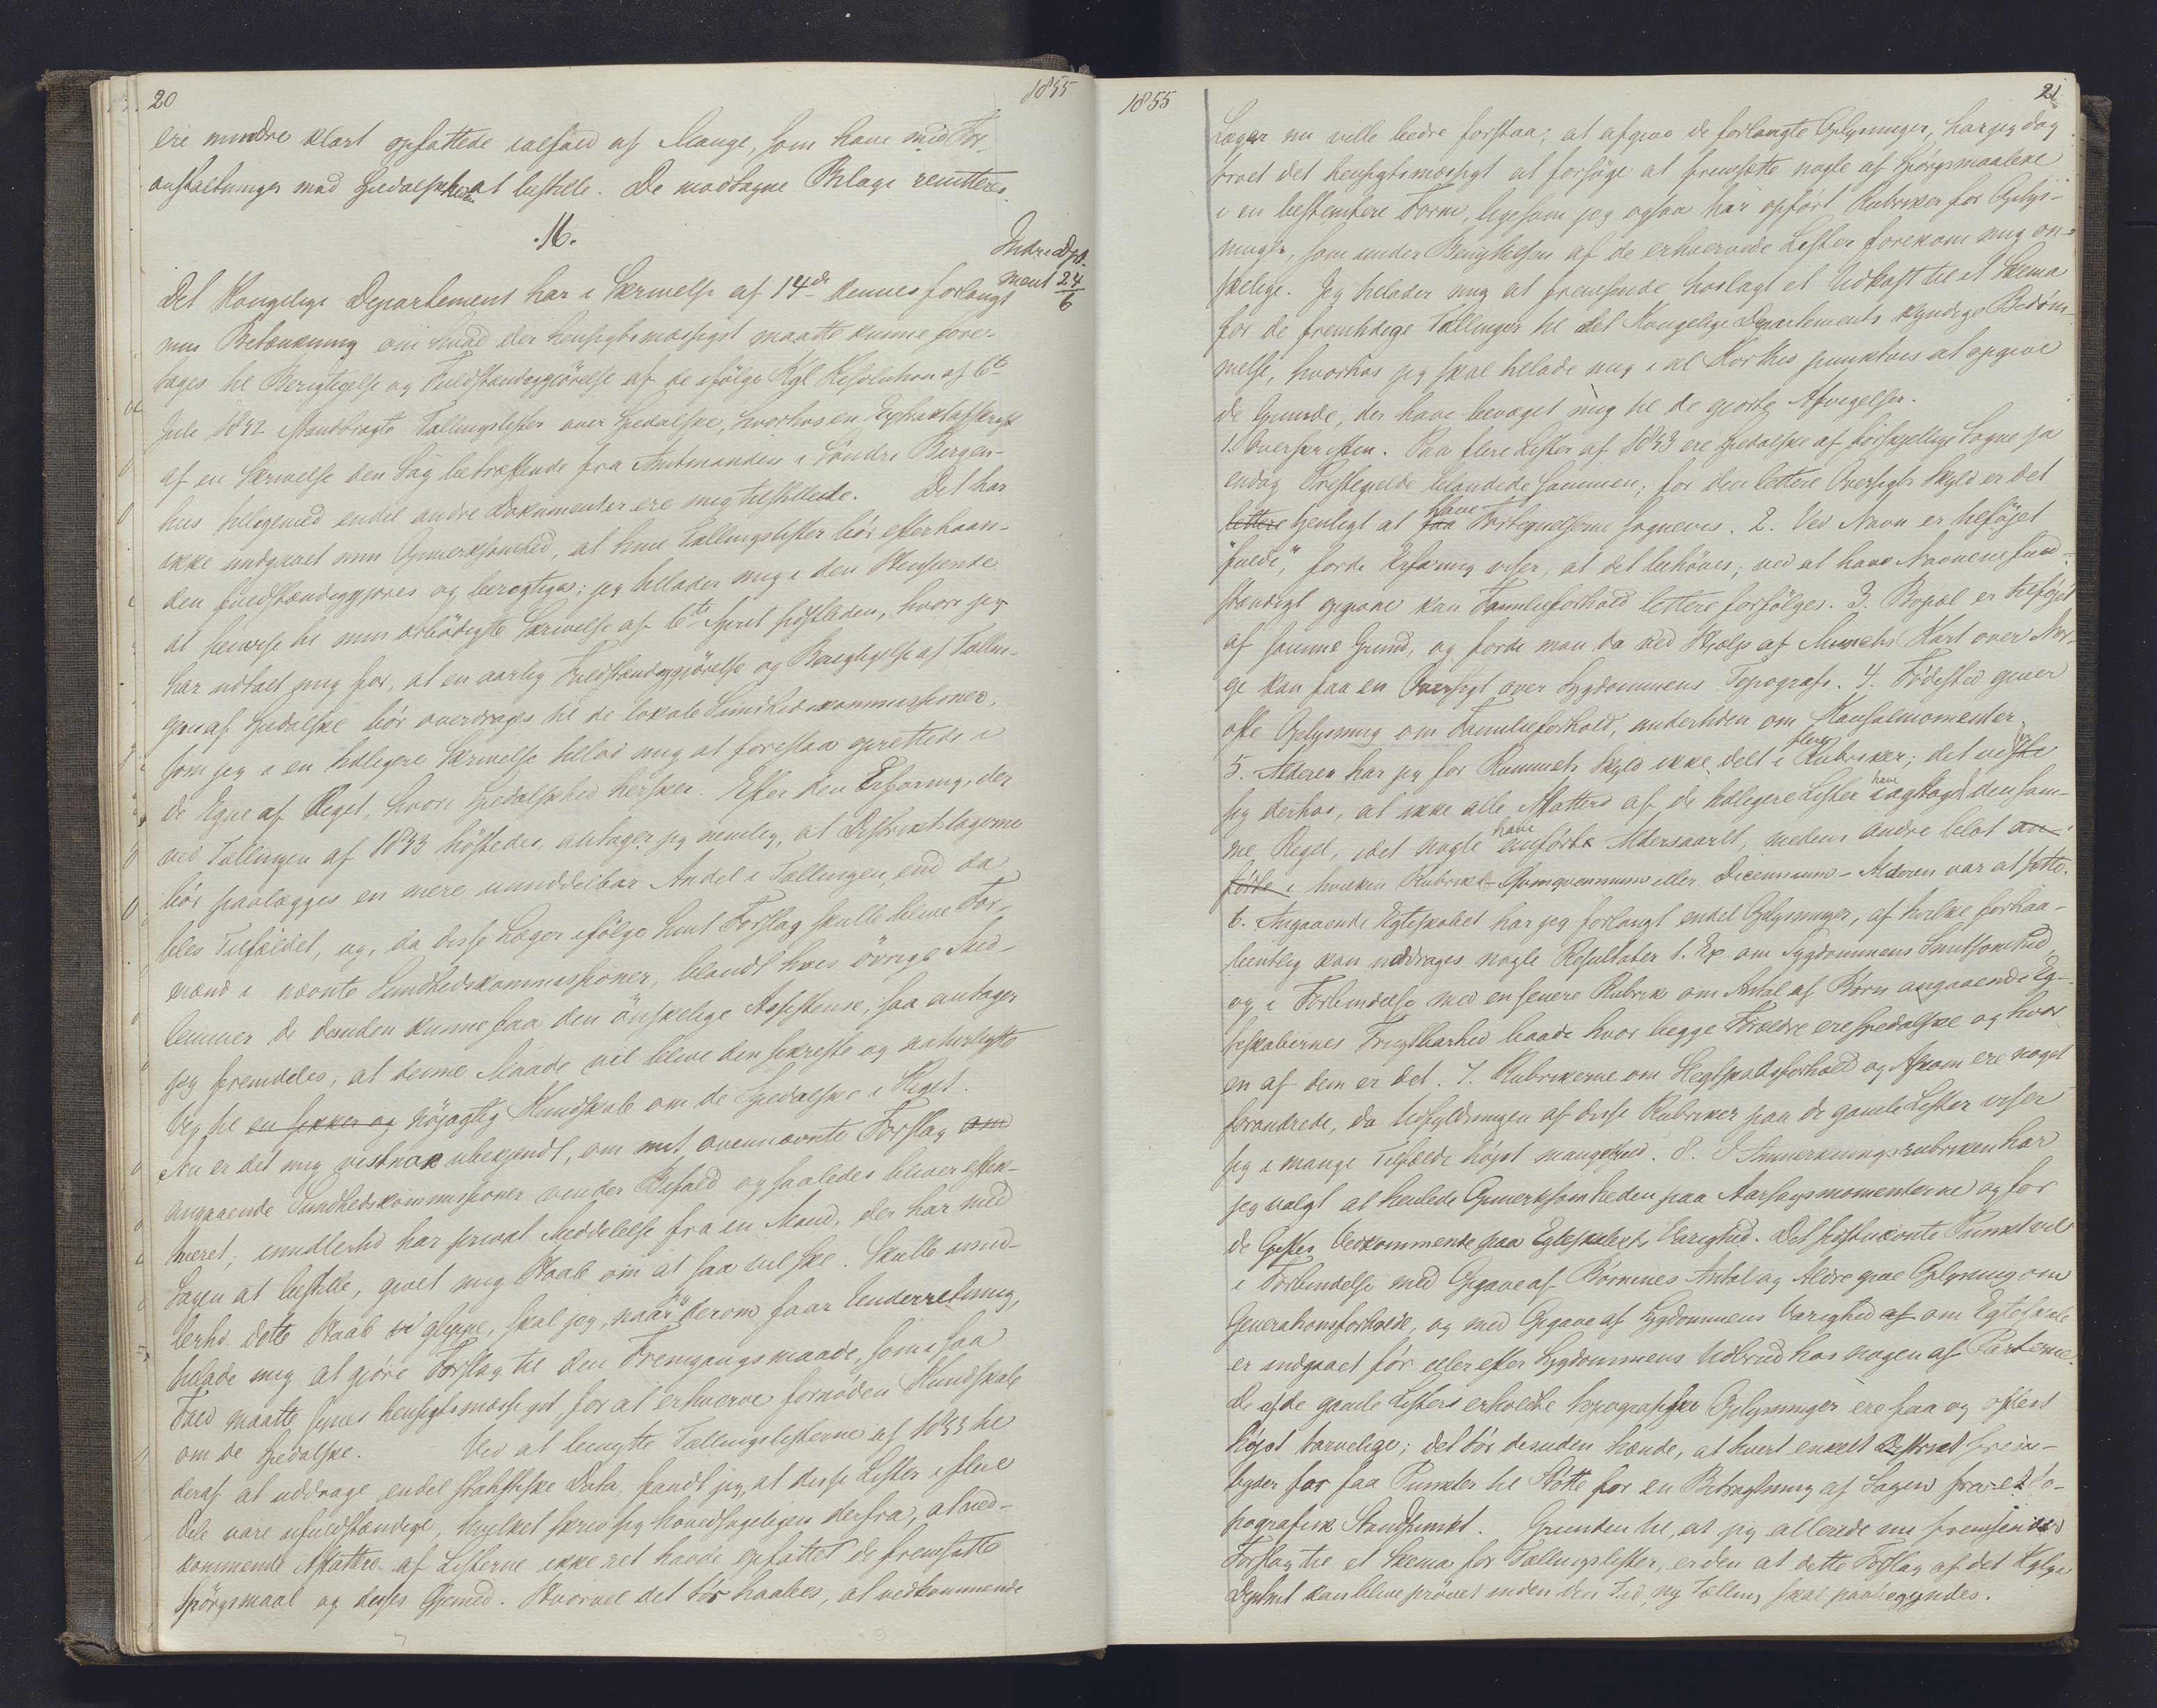 20
1855
ere mindre klart opfattede ialfald af Mange, som have med For-
anstaltninger mod Spedalskheden at bestille. De modtagne Bilage remitteres.
11.
Indre Dpt-
ment 24/6
Det Kongelige Departement har i Skrivelse af 14de dennes forlangt
min Betænkning om hvad der hensigtsmæssigst maatte kunne fore-
tages til Berigtigelse og Fuldstændiggjörelse af de ifölge Kgl Resolution af 6te
Juli 1852 istandbragte Tællingslister over Spedalske, hvorhos en Extraktafskrift
af en Skrivelse den Sag betræffende fra Amtmanden i Söndre Bergen-
hus tilligemed endel andre Dokumenter ere mig tilstillede. Det har
ikke undgaaet min Opmerksomhed, at hine Tællingslister bör efterhaan-
den fuldstændiggjøres og berigtiges; jeg tillader mig i den Henseende
at henvise til min ærbödigste Skrivelse af 6te April sidstleden, hvori jeg
har udtalt mig for, at en aarlig Fuldstændiggjörelse og Berigtigelse af Tællin-
gen af Spedalske bör overdrages til de lokale Sundhedskommissioner,
som jeg i en tidligere Skrivelse tillod mig at foreslaa oprettede i
de Egne af Riget, hvori Spedalskhed hersker. Efter den Erfaring, der
ved Tællingen af 1853 höstedes, antager jeg nemlig, at Distriktslægerne
bör paalægges en mere umiddelbar Andel i Tællingen, end da
blev Tilfældet, og, da disse Læger ifölge hint Forslag skulle blive For-
mænd i nævnte Sundhedskommissioner, blandt hvis övrige Med-
lemmer de desuden kunne faa den önskelige Assistense, saa antager
jeg fremdeles, at denne Maade vil blive den sikreste og naturligste
Vej til en sikker og nöjagtig Kundskab om de Spedalske i Riget.
Nu er det mig vistnok ubekjendt, om mit ovennævnte Forslag om
angaaende Sundhedskommissioner vinder Bifald og saaledes bliver effek-
tueret; imidlertid har privat Meddelelse fra en Mand, der har med
Sagen at bestille, givet mig Haab om at saa vil ske. Skulle imid-
lertid dette Haab glippe, skal jeg, naar jeg derom faar Underretning,
tillade mig at gjöre Forslag til den Fremgangsmaade, som i saa
Fald maatte synes hensigtsmæssigst, for at erhverve fornöden Kundskab
om de Spedalske. Ved at benytte Tællingslisterne af 1853 til
deraf at uddrage endel statistiske Data, fandt jeg, at disse Lister i flere
Dele vare ufuldstændige, hvilket skrev sig hovedsageligen derfra, at ved-
kommende Affattere af Listerne ikke ret havde opfattet de fremsatte
Spörgsmaal og disses Öjemed. Hvorvel det tör haabes, at vedkommende
1855
21
Læger nu ville bedre forstaa, at afgive de forlangte Oplysninger, har jeg dog
troet det hensigtsmæssigt at forsöge at fremsætte nogle af Spörgsmaalene
i en bestemtere Form, ligesom jeg ogsaa har opfört Rubriker for Oplys-
ninger, som under Benyttelsen af de erhvervede Lister forekom mig ön-
skelige. Jeg tillader mig at fremsende hoslagt et Udkast til et Skema
for de fremtidige Tællinger til det Kongelige Departements kyndige Bedöm-
melse, hvorhos jeg skal tillade mig i al Korthed punktvis at opgive
de Grunde, der have bevæget mig til de gjorte Afvigelser.
1. Overskriften. Paa flere Lister af 1853 ere Spedalske af forskjellige Sogne ja
endog Prestegjelde blandede sammen; for den lettere Oversigts Skyld er det
lettere tjenligt at faa have Fortegnelserne sognevis. 2. Ved Navn er tilföjet
"fulde", fordi Erfaring viser, at det behöves; ved at have Navnene fuld-
stændigt opgivne kan Familieforhold lettere forfölges. 3. Bopæl er tilföjet
af samme Grund, og fordi man da ved Hjælp af Munchs Kart over Nor-
ge kan faa en Oversigt over Sygdommens Topografi. 4. Födested giver
ofte Oplysning om Familieforhold, undertiden om Kausalmomenter.
5. Alderen har jeg for Rummets Skyld ikke delt i flere Rubriker; det viste
sig derhos, at ikke alle Affattere af de tidligere Lister have iagttaget den sam-
me Regel, idet nogle have anfört Aldersaaret, medens andre blot an-
förte i hvilken Rubrik - Qvinqvennium eller Dicennium - Alderen var at sætte.
6. Angaaende Egteskabet har jeg forlangt endel Oplysninger, af hvilke forhaa-
bentlig kan uddrages nogle Resultater t. Ex. om Sygdommens Smitsomhed,
og i Forbindelse med en senere Rubrik om Antal af Børn angaaende Eg-
teskabernes Frugtbarhed baade hvor begge Forældre ere spedalske og hvor
en af dem er det. 7. Rubrikerne om Slegtskabsforhold og Afkom ere noget
forandrede, da Udfyldningen af disse Rubriker paa de gamle Lister viser
sig i mange Tilfælde höjst mangelfuld. 8. I Anmerkningsrubriken har
jeg valgt at henlede Opmerksomheden paa Aarsagsmomenterne og for
de Giftes Vedkommende paa Egteskabets Varighed. Det sidstnævnte Punkt vil
i Forbindelse med Opgave af Børnenes Antal og Aldre give Oplysning om
Generationsforholde, og med Opgave af Sygdommens Varighed af om Egteskab
er indgaaet för eller efter Sygdommens Udbrud hos nogen af Parterne.
De af de gamle Listers erholdte topografiske Oplysninger ere faa og oftest
höjst tarvelige; det tör desuden hænde, at hvert enkelt Distrikt frem-
byder for faa Punkter til Stötte for en Betragtning af Sagen fra et to-
pografisk Standpunkt. Grunden til, at jeg allerede nu fremsender
Forslag til et Skema for Tællingslister, er den at dette Forslag af det Kglige
Dptmt kan blive prövet inden den Tid, ny Tælling skal paabegyndes.